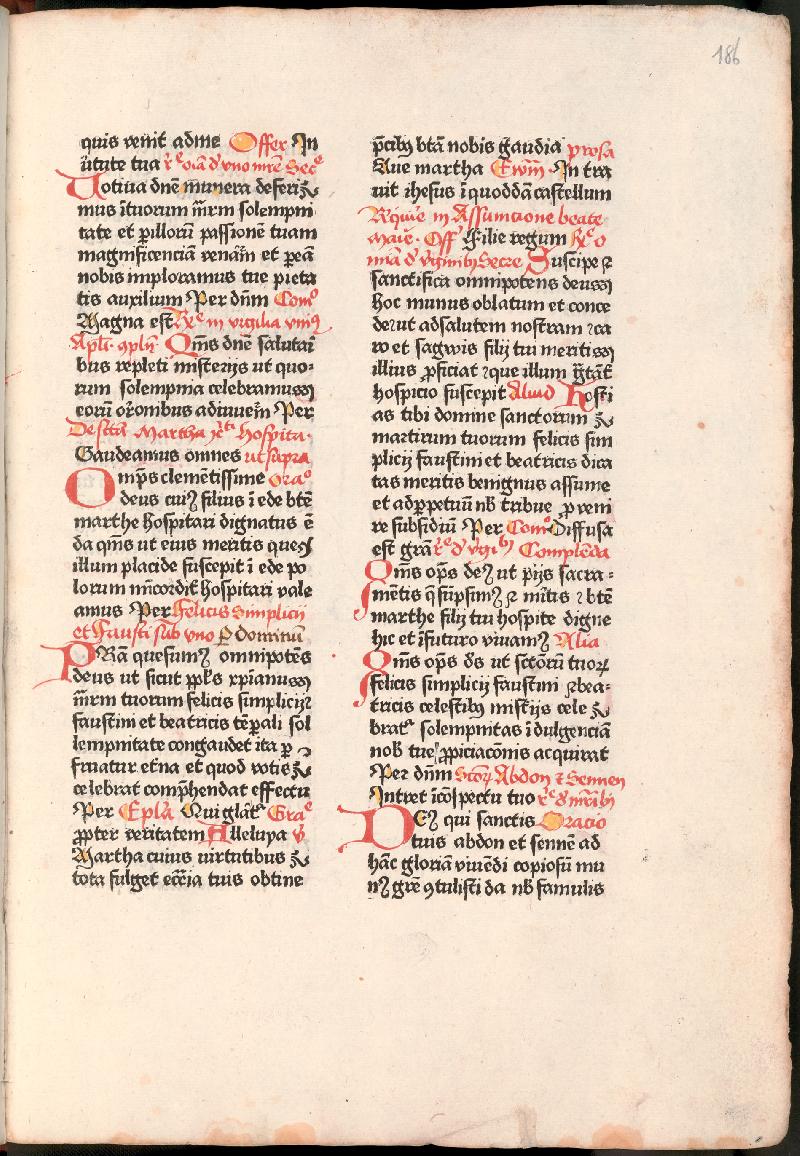 186
quis venit adme Offer In
ũtute tua rͤ oĩa d̉ vno mr̃e Secͤ
Uotiua dñe munera deferiꝫ
mus ĩtuorum m̃rm solempni
tate et ꝑillorũ passionẽ tuam
magnificenciã venaĩm et ꝑeã
nobis imploramus tue pieta
tis auxilium Per dñm Comͦ
Magna est Rͤ in vigilia vniꝰ
Apl̃i ꝯpl̃ Q̃ms dñe salutari
bus repleti misterijs ut quo
rum solempnia celebramus
eorũ or̃onibus adiuuem̃ Per
De sct̃a Martha xp̃i hospita
Gaudeamus omnes ut supra
Omp̃s clementissime Oraͦ
deus cuiꝰ filius ĩ ede btẽ
marthe hospitari dignatus ẽ
da qm̃s ut eius meritis que
illum placide suscepit ĩ ede po
lorum m̃cordit̃ hospitari vale
amus Per Felicis Simplicii
et Fausti sub vno P dominũ
PRã quesumꝰ omnipotẽs
deus ut sicut ppl̃s xp̃ianus
m̃rm tuorum felicis simplicij
faustini et beatricis tẽpali sol
lempnitate congaudet ita ꝑ
fruatur et̃na et quod votis
celebrat comp̃hendat effectu
Per Epl̃a Qui glãt Graͤ
ꝓpter veritatem Alleluya v̉
Martha cuius virtutibus
tota fulget ecc̃ia tuis obtine
p̃cibꝰ btã nobis gaudia prosa
Aue martha Ewm̃ In tra
uit ihesus ĩ quoddã castellum
Require in Assumcione beate
Marie. Off̃ Filie regum Rͤ o
mĩa d̉ virginibꝰ Secre Suscipe ⁊
sanctifica omnipotens deus
hoc munus oblatum et conce
de ut adsalutem nostram ⁊ca
ro et sagwis filij tui meritis
illius ꝓficiat ⁊que illum g̃tãt
hospicio suscepit Aliud Hosti
as tibi domine sanctorum
martirum tuorum felicis sim
plicij faustini et beatricis dica
tas meritis benignus assume
et adꝑpetuũ nb̃ tribue ꝓveni
re subsidiũ Per Comͦ Diffusa
est grã rͤ d̉ v̉gibꝰ Complenda
Q̃ms op̃s deꝰ ut p̃ijs sacra
mẽtis q̃ sũpsimꝰ ⁊ m̃itis ⁊btẽ
marthe filij tui hospite digne
hic et ĩfuturo viuamꝰ Alia
Q̃ms op̃s ds̃ ut sct̃orũ tuoꝝ
felicis simplicij faustini ⁊bea
tricis celestibꝰ mist̃ijs cele
brat̃ solempnitas ĩdulgenciã
nob̃ tue ꝓpiciacõnis acquirat
Per dñm Sctoꝝ Abdon ⁊ Sennen
Intret ĩcõspectu tuo rͤ d̉ mr̃ibꝰ
DEꝰ qui sanctis Oracio
tuis abdon et sennẽ ad
hãc gloriã viuẽdi copiosũ mu
nꝰ grẽ ꝯtulisti da nb̃ famulis